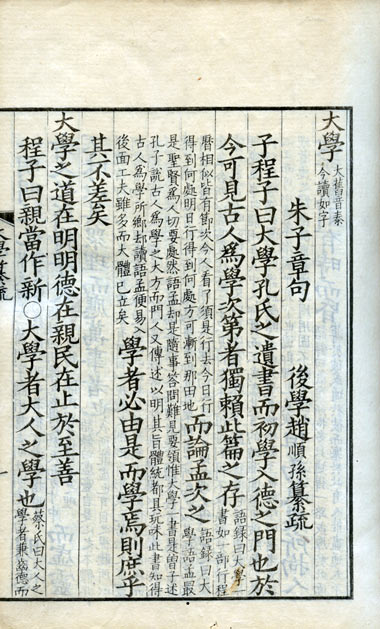 大學 大舊音泰今讀如字
朱子章句 後學趙順孫纂疏
子程子曰大學孔氏之遺書而初學入德之門也於
今可見古人爲學次第者獨賴此篇之存 語録曰大學一書如一部行程
曆相似皆有節次今人看了須是行去今日行得到何處明日行得到何處方可漸到那田地 而論孟次之 語録曰大學語孟最
是聖賢爲人切要處然語孟却是隨事答問難見要領惟大學一書是曾子述孔子説古人爲學之大方而門人又傳述以明其旨體統都具玩味此書知得
古人爲學所鄉却讀語孟便易入後面工夫雖多而大體已立矣 學者必由是而學焉則庶乎
其不差矣
大學之道在明明德在親民在止於至善
程子曰親當作新○大學者大人之學也 蔡氏曰大人之學者兼齒德而